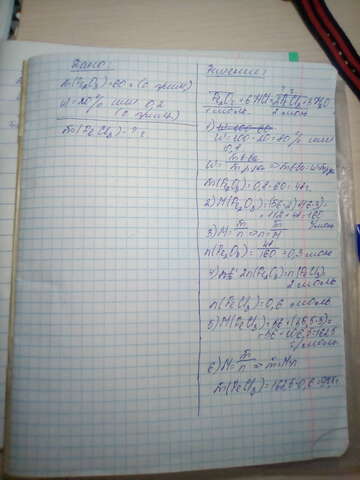 Дано:
m(Fe₂O₃)=60 г (с прим.)
W=20% или 0,2
(с прим.)
m(FeCl₃)-?
Решение:
Fe₂O₃+6HCl=2FeCl₃+3H₂O
1 моль 2 моль
1)
W=100-20=80% или
0,8
W= m в-ва / m р-ра => m в-ва=W·m р-ра
m(Fe₂O₃)=0,8·60=48г.
2) M(Fe₂O₃)=(56·2)+(16·3)=
=112+48=160
г/моль
3) M=m/n => n=m/M
n(Fe₂O₃)=48/160=0,3 моль
4) 2n(Fe₂O₃)=n(FeCl₃)
2 моль
n(FeCl₃)=0,6 моль
5) M(FeCl₃)=56+(35,5·3)=
=56+106,5=162,5
г/моль
6) M=m/n => m=M·n
m(FeCl₃)=162,5·0,6=97,5г